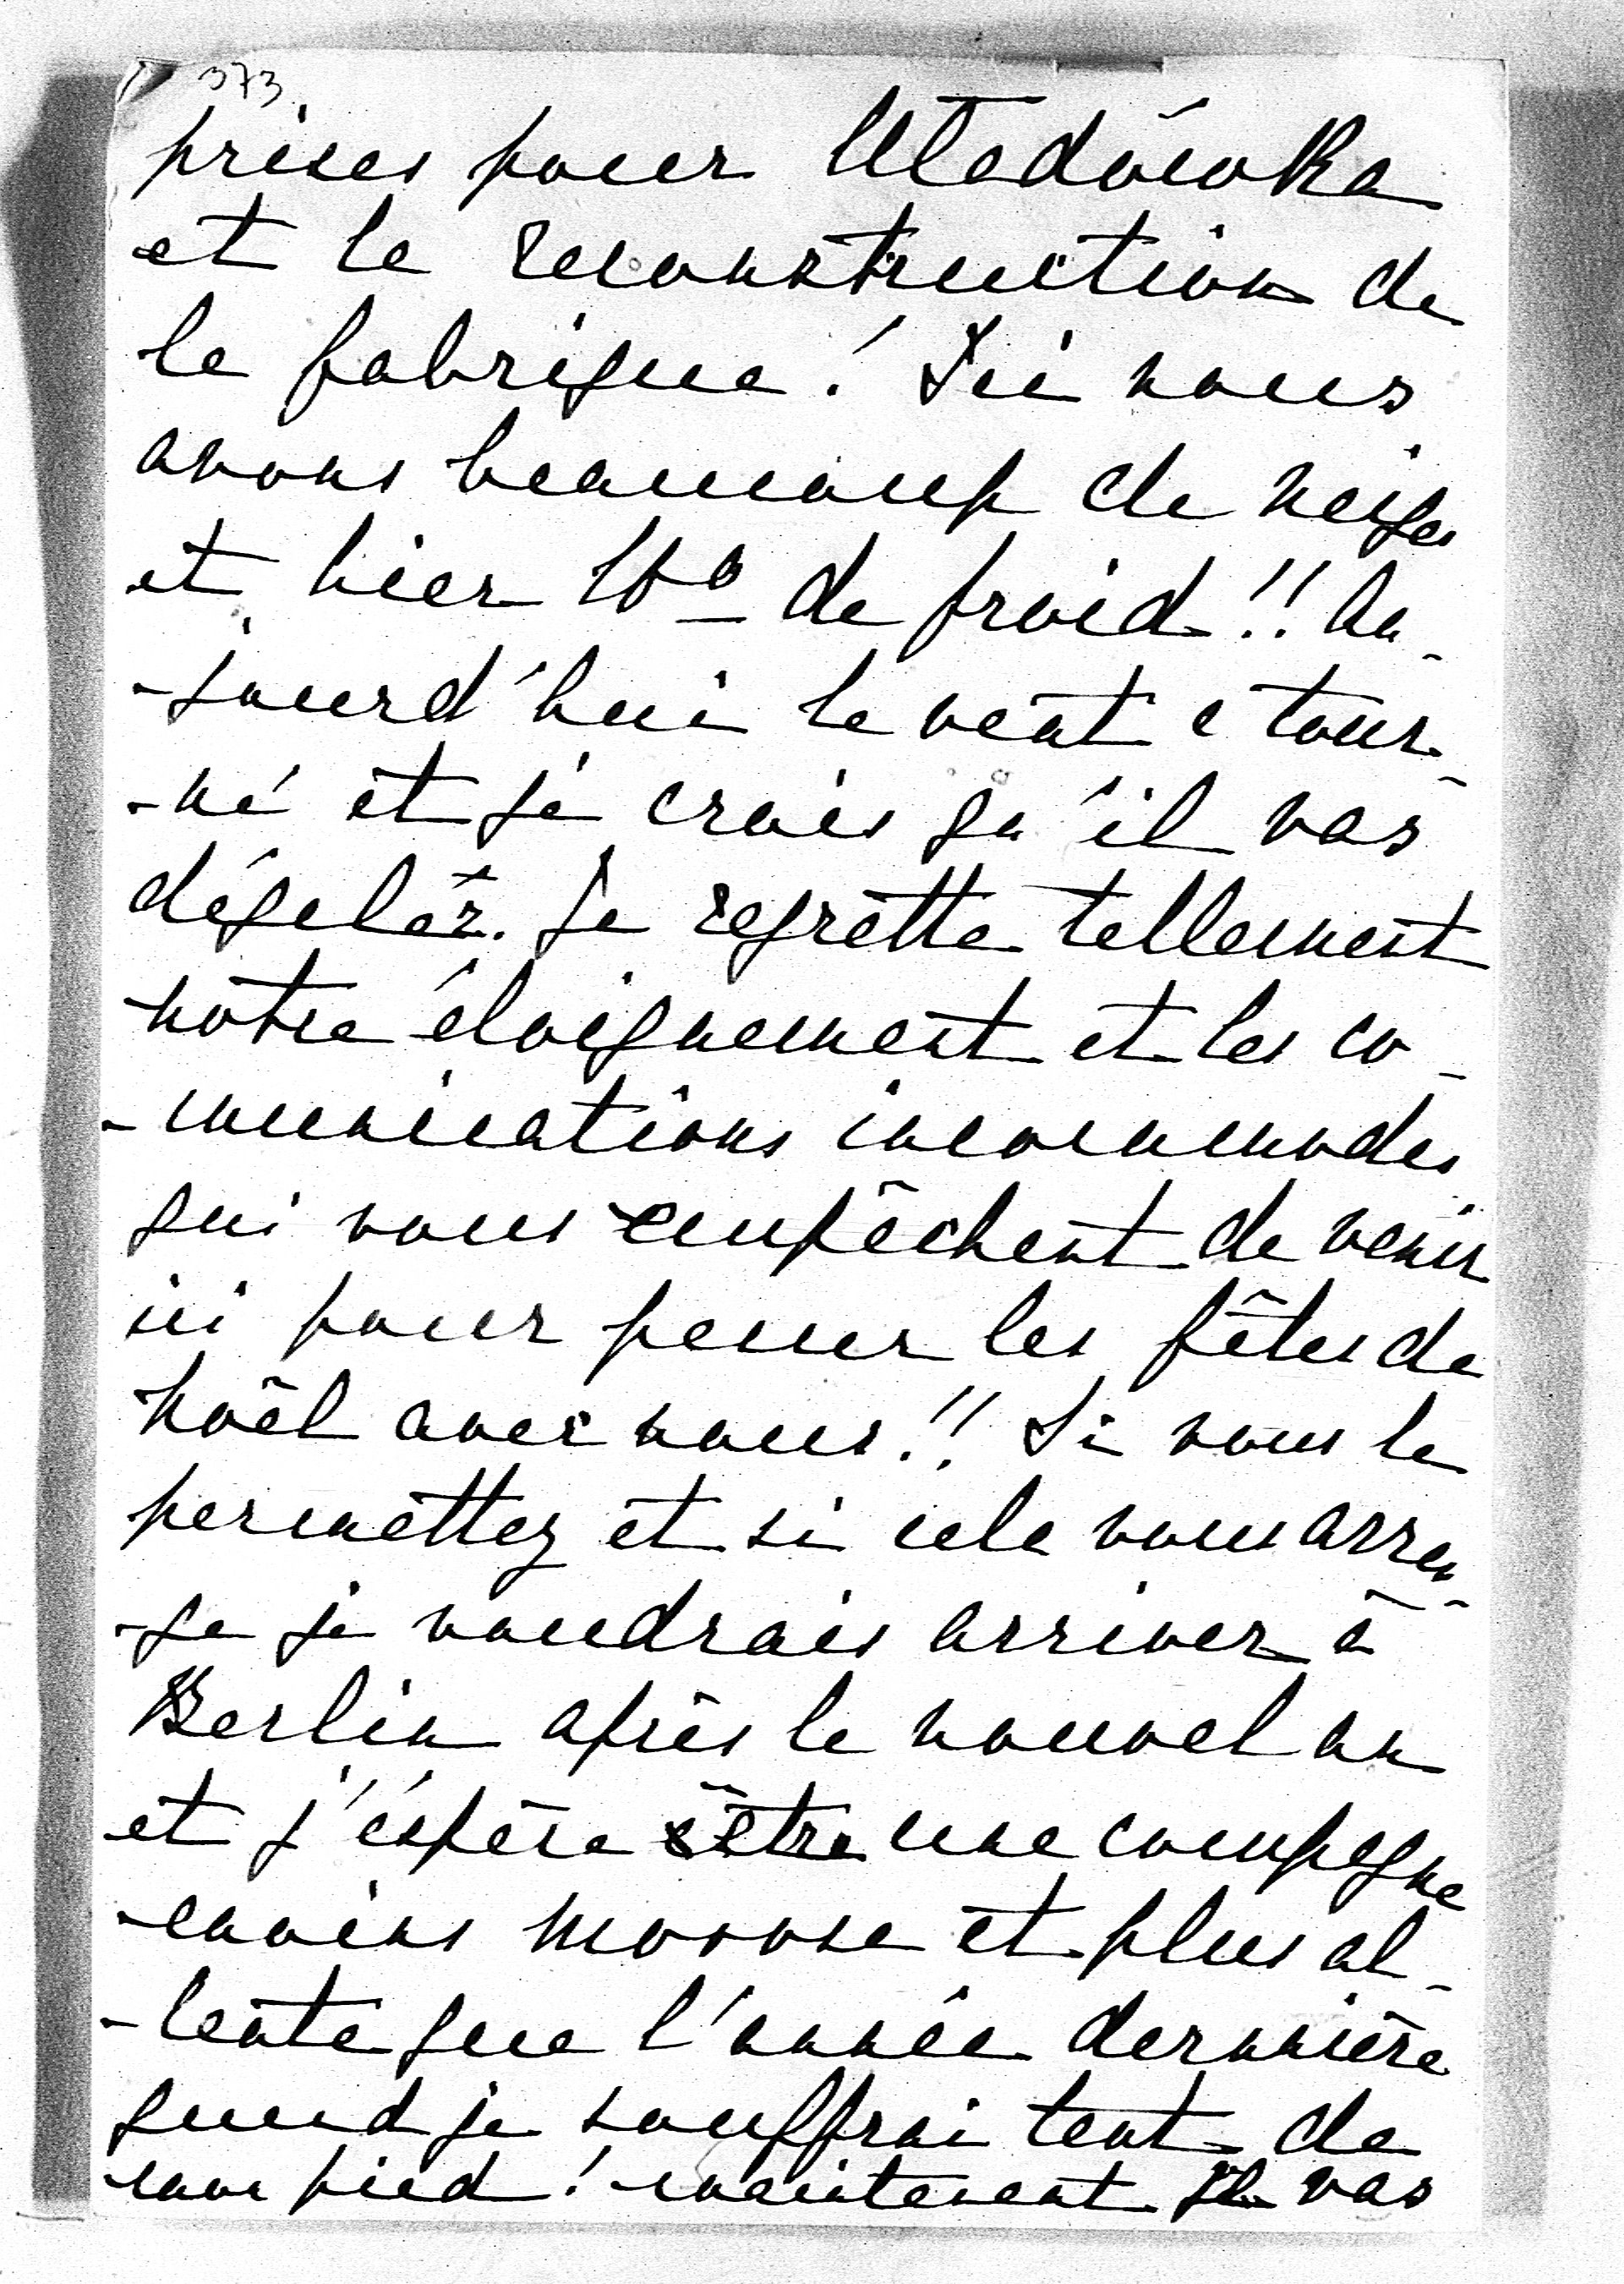 373
prises pour Uladówka
et la reconstruction de
la fabrique! Ici nous
avons beaucoup de neiges
et hier 16° de froid!! Au-
-jourd'hui le vent a tour-
-né et je crois qu'il vas
dégelér. Je regrette tellement
notre éloignement et les co-
-munications incommodes
qui vous empêchent de venir
ici pour passer les fêtes de
Noël avec nous!! Si vous le
permettez et si cela vous arran-
-ge je voudrais arriver à
Berlin après le nouvel an
et j'éspère être une compagne
-moins morose et plus al-
-lante que l'année dernnière
quand je souffrai tant de
mon pied! maintenant il vas